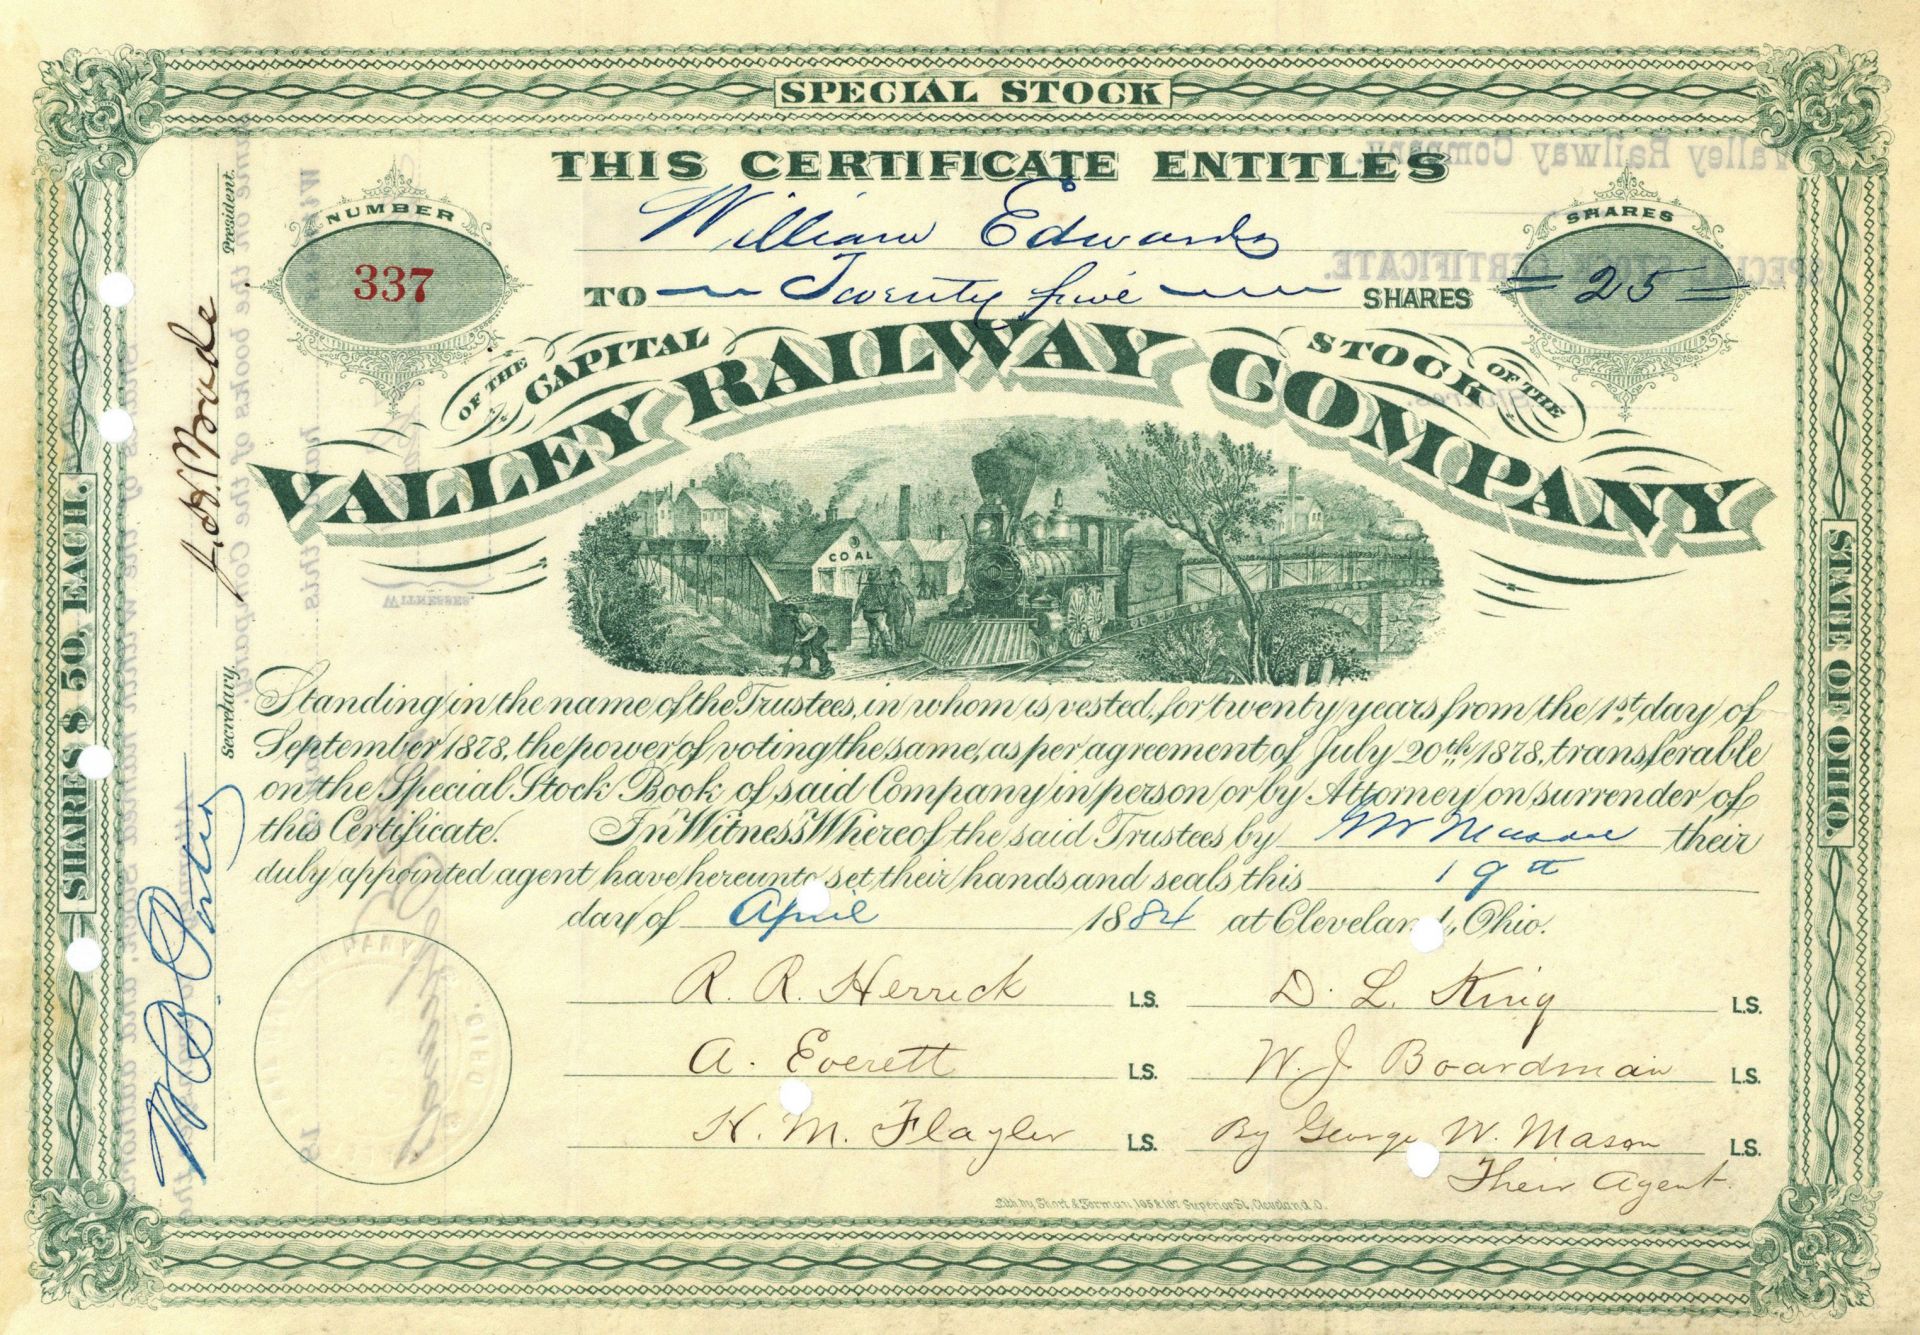 SPECIAL STOCK
THIS CERTIFICATE ENTITLES
NUMBER
337
William Edwards
SHARES
= 25 =
TO Twenty five SHARES
OF THE CAPITAL STOCK OF THE
VALLEY RAILWAY COMPANY
COAL
Standing in the name of the Trustees, in whom is vested, for twenty years from the 1st day of
September 1878, the power of voting the same, as per agreement of July 20th 1878, transferable
on the Special Stock Book of said Company in person or by Attorney on surrender of
this Certificate. In Witness Whereof the said Trustees by Mason their
duly appointed agent have hereunto set their hands and seals this 19th
day of April 1884 at Cleveland, Ohio.
R. R. Herrick L.S. D. L. King L.S.
A. Everett L.S. W. J. Boardman L.S.
H. M. Flagler L.S. By George W. Mason L.S.
Their Agent.
Lith by Short & Forman, 105 & 107 Superior St, Cleveland, O.
SHARES $50, EACH.
President.
Secretary.
STATE OF OHIO.
Valley Railway Company
SPECIAL STOCK CERTIFICATE.
WITNESSES.